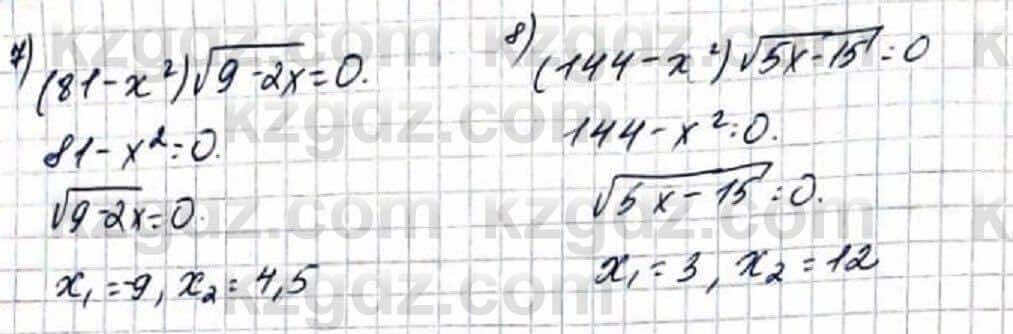 7) (81-x²)√(9-2x)=0.
81-x²=0.
√(9-2x)=0.
x₁=-9, x₂=4,5
8) (144-x²)√(5x-15)=0
144-x²=0.
√(5x-15)=0.
x₁=3, x₂=12
kzgdz.com
kzgdz.com
kzgdz.com
kzgdz.com
kzgdz.com